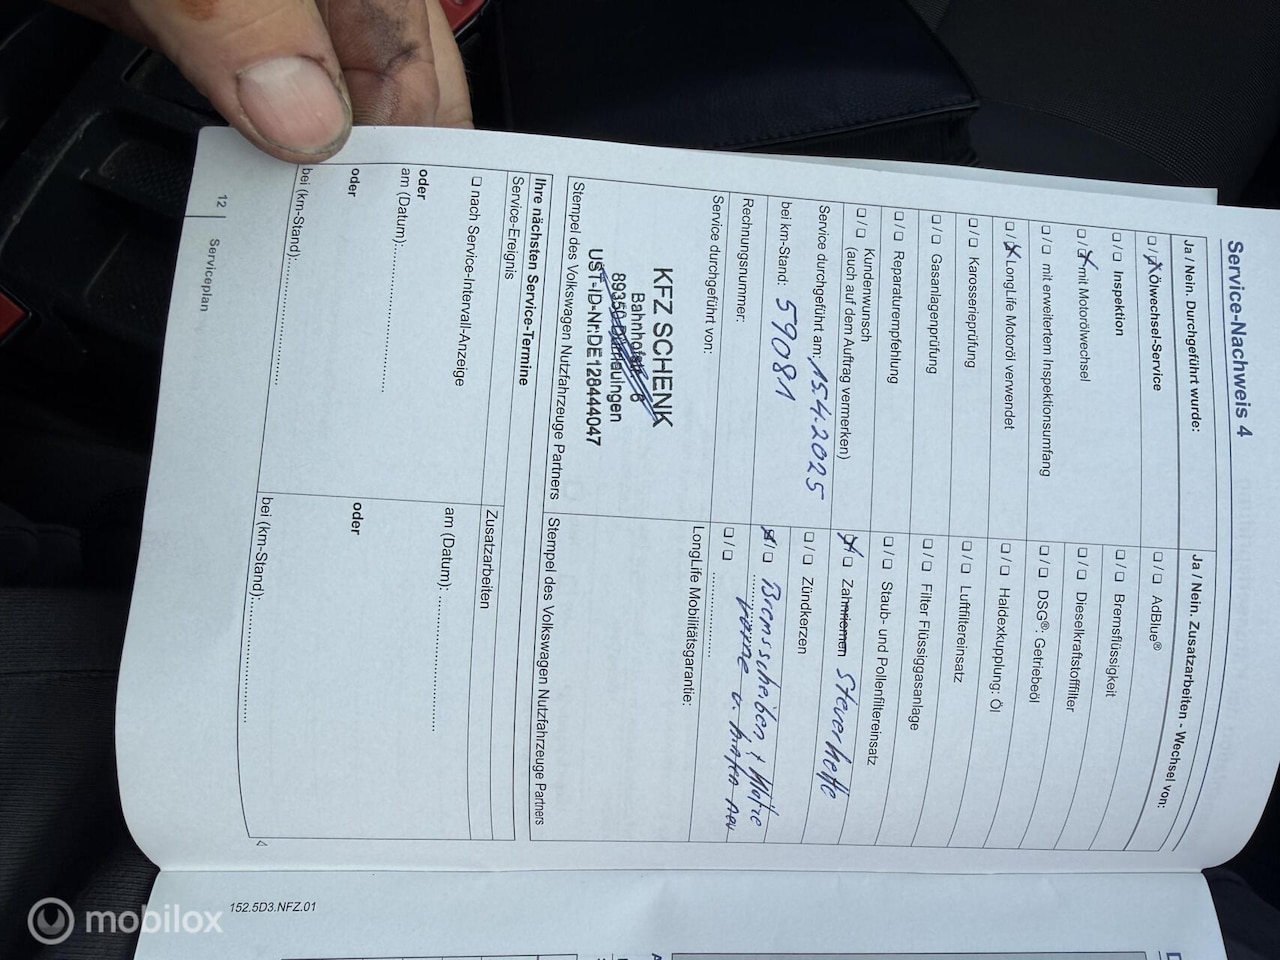 Service-Nachweis 4
Ja / Nein. Durchgeführt wurde:
☐ / ☒ Ölwechsel-Service
☐ / ☐ Inspektion
☐ / ☒ mit Motorölwechsel
☐ / ☐ mit erweitertem Inspektionsumfang
☐ / ☒ LongLife Motoröl verwendet
☐ / ☐ Karosserieprüfung
☐ / ☐ Gasanlagenprüfung
☐ / ☐ Reparaturempfehlung
☐ / ☐ Kundenwunsch
(auch auf dem Auftrag vermerken)
Service durchgeführt am: 15.4.2025
bei km-Stand: 59081
Rechnungsnummer:
Service durchgeführt von:
KFZ SCHENK
Bahnhofstr. 6
89350
UST-ID-Nr.DE128444047
Stempel des Volkswagen Nutzfahrzeuge Partners
Ja / Nein. Zusatzarbeiten - Wechsel von:
☐ / ☐ AdBlue®
☐ / ☐ Bremsflüssigkeit
☐ / ☐ Dieselkraftstofffilter
☐ / ☐ DSG®: Getriebeöl
☐ / ☐ Haldexkupplung: Öl
☐ / ☐ Luftfiltereinsatz
☐ / ☐ Filter Flüssiggasanlage
☐ / ☐ Staub- und Pollenfiltereinsatz
☒ / ☐ Zahnriemen Steuerkette
☐ / ☐ Zündkerzen
☒ / ☐ Bremsscheiben +
☐ / ☐ vorne u. hinten neu
LongLife Mobilitätsgarantie:
Stempel des Volkswagen Nutzfahrzeuge Partners
Ihre nächsten Service-Termine
Service-Ereignis
☐ nach Service-Intervall-Anzeige
oder
am (Datum):
oder
bei (km-Stand):
Zusatzarbeiten
am (Datum):
oder
bei (km-Stand):
12
Serviceplan
152.5D3.NFZ.01
mobilox